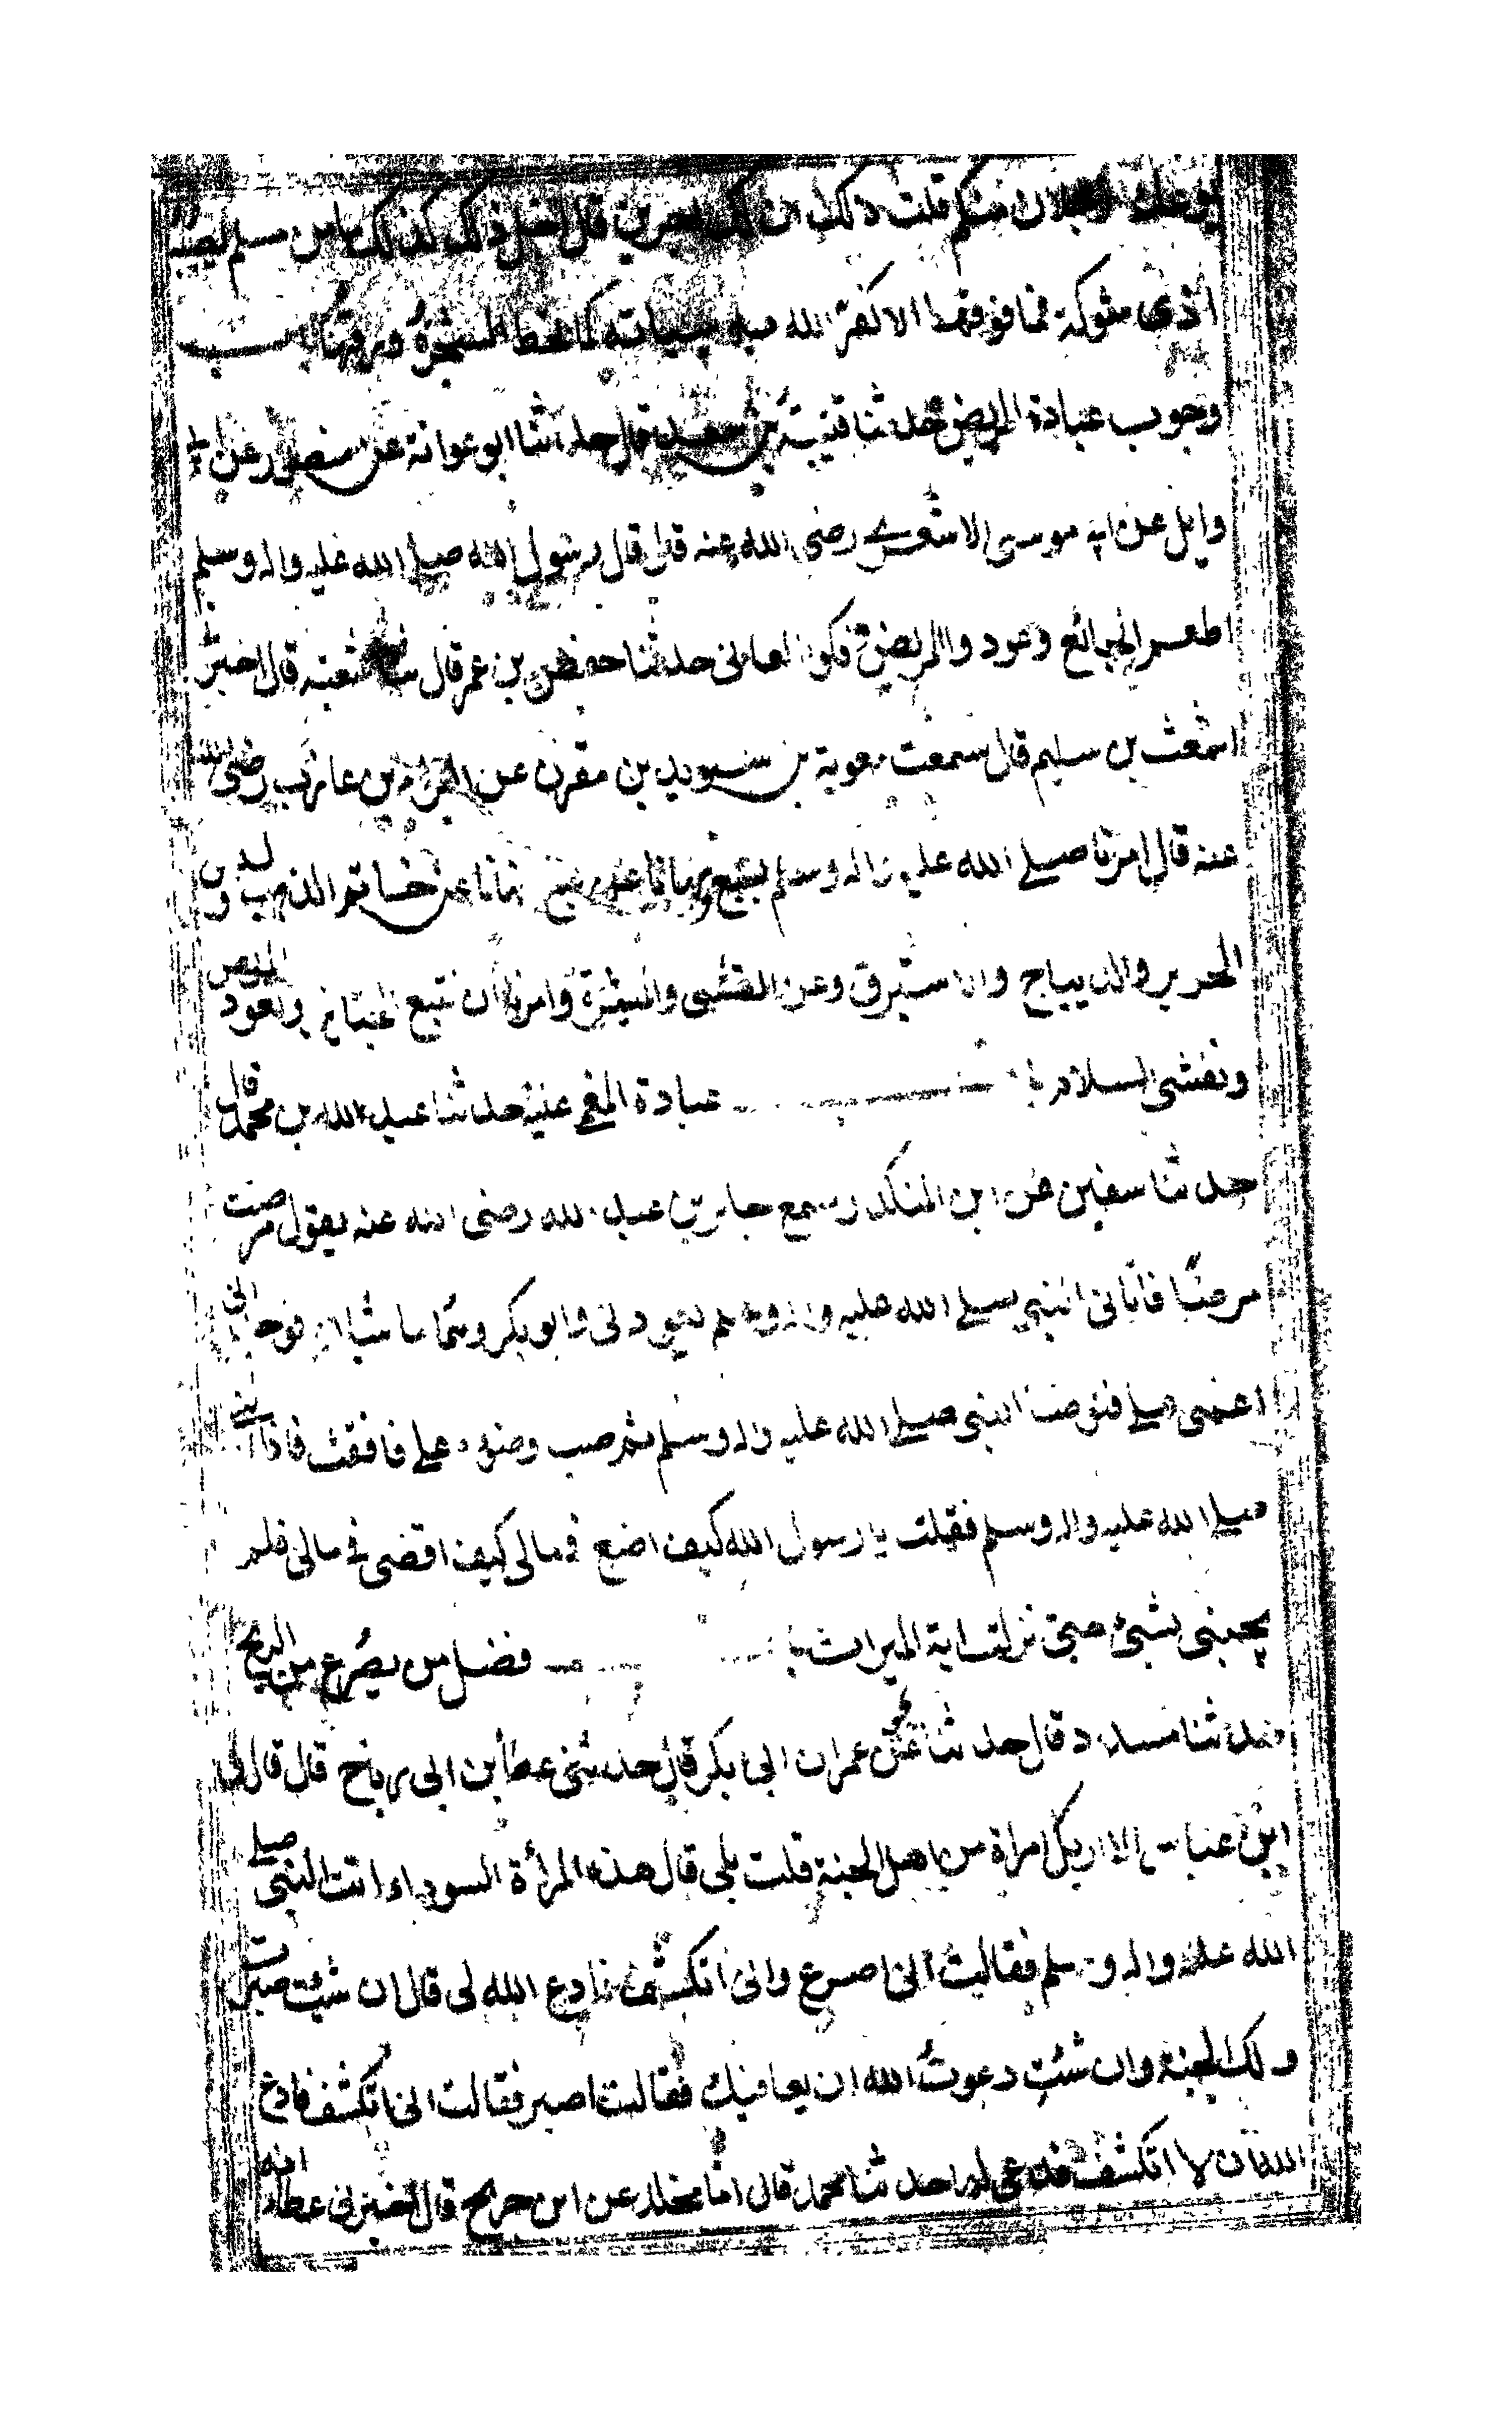 يوعك رجلان منكم قلت ذلك ان لك اجرين قال اجل ذلك كذلك ما من مسلم يصيبه
اذى شوكة فما فوقها الا كفر الله بها سيئاته كما تحط الشجرة ورقها باب
وجوب عيادة المريض حدثنا قتيبة بن سعيد قال حدثنا ابو عوانة عن منصور عن ابي
وايل عن ابي موسى الاشعري رضي الله عنه قال قال رسول الله صلى الله عليه واله وسلم
اطعموا الجائع وعودوا المريض وفكوا العاني حدثنا حفص بن عمر قال شعبة قال اخبرني
اشعث بن سليم قال سمعت معوية بن سويد بن مقرن عن البراء بن عازب رضي الله
عنه قال امرنا صلى الله عليه واله وسلم بسبع ونهانا عن سبع نهانا عن خاتم الذهب ولبس
الحرير والديباج والاستبرق وعن القسي والميثرة وامرنا ان نتبع الجنائز ونعود المريض
ونفشي السلام با ب عيادة المغمى عليه حدثنا عبد الله بن محمد قال
حدثنا سفين عن ابن المنكدر سمع جابر بن عبد الله رضي الله عنه يقول مرضت
مرضا فاتاني النبي صلى الله عليه واله وسلم يعودني وابو بكر وهما ماشيان فوجداني
اغمي علي فتوضا النبي صلى الله عليه واله وسلم ثم صب وضوءه علي فافقت فاذا النبي
صلى الله عليه واله وسلم فقلت يا رسول الله كيف اصنع في مالي كيف اقضي في مالي فلم
يجبني بشئ حتى نزلت اية الميراث با ب فضل من يصرع من الريح
حدثنا مسدد قال حدثنا يحيى عن عمران ابي بكر قال حدثني عطا بن ابي رباح قال قال لي
ابن عباس الا اريك امراة من اهل الجنة قلت بلى قال هذه المرأة السوداء اتت النبي صلى
الله عليه واله وسلم فقالت اني اصرع واني اتكشف فادع الله لي قال ان شئت صبرت
ولك الجنة وان شئت دعوت الله ان يعافيك فقالت اصبر فقالت اني اتكشف فادع
الله ان لا اتكشف فدعى لها حدثنا محمد قال انا مخلد عن ابن جريج قال اخبرني عطاء انه